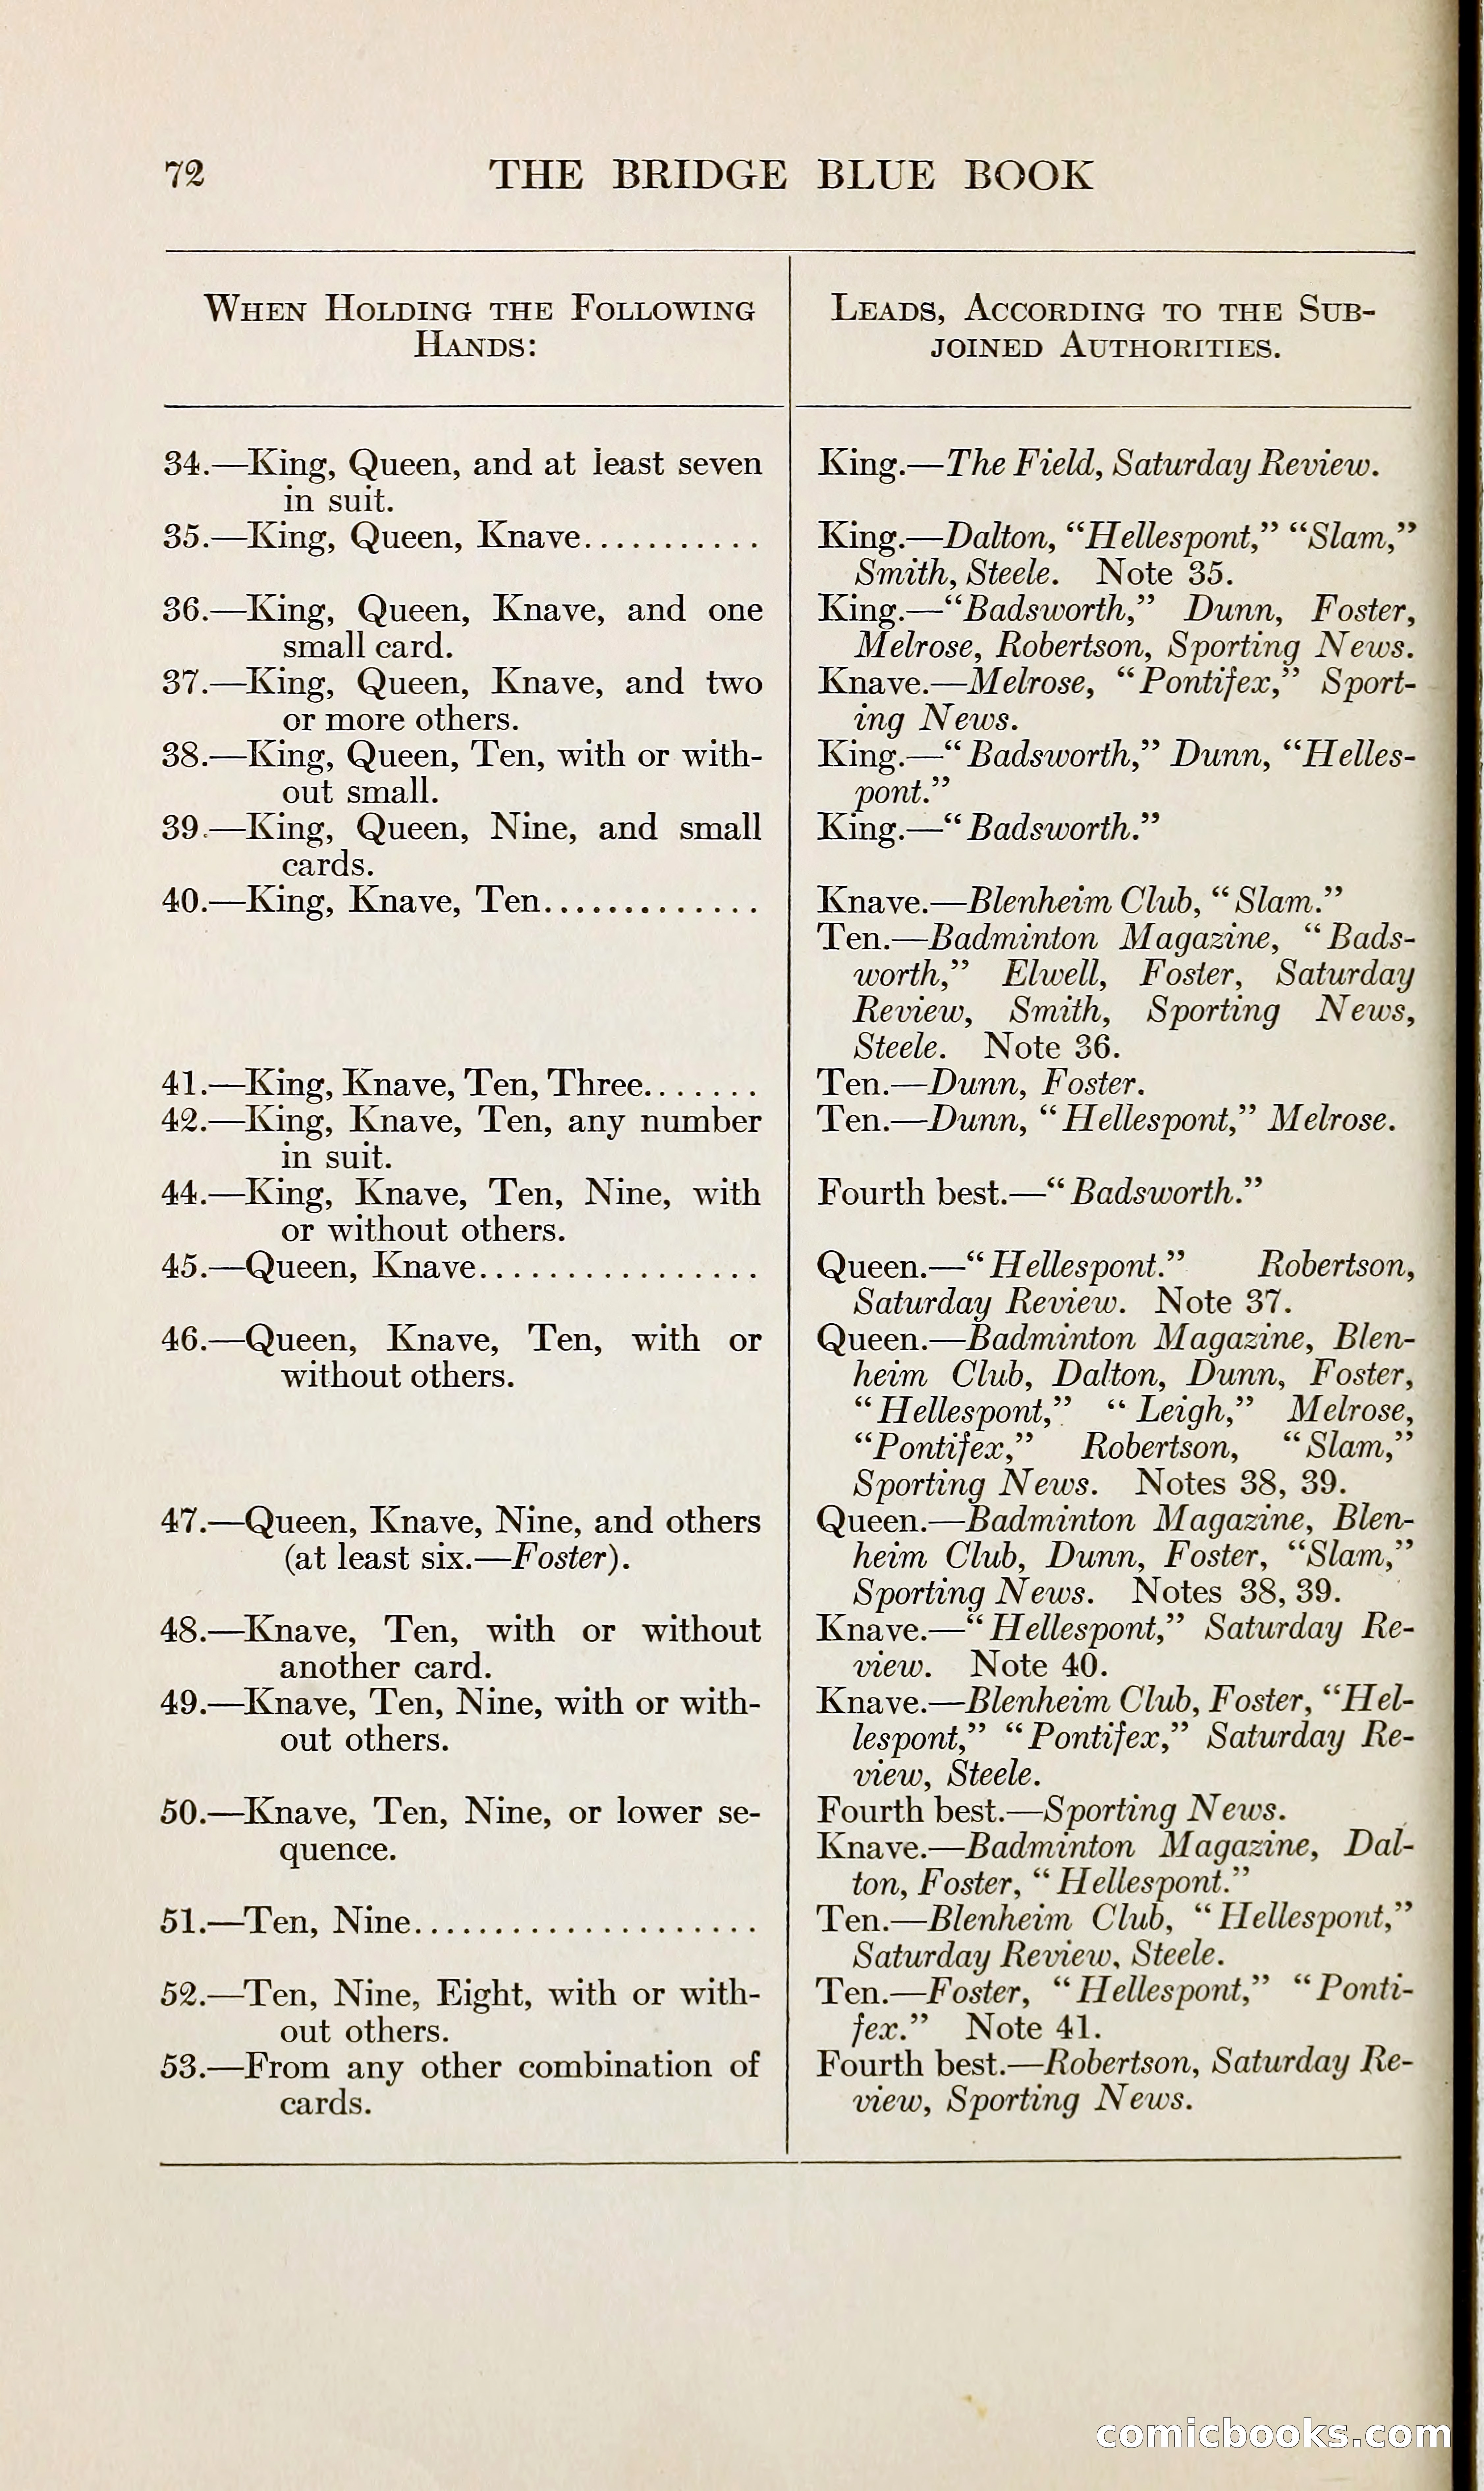 72 THE BRIDGE BLUE BOOK
WHEN HOLDING THE FOLLOWING
HANDS:
LEADS, ACCORDING TO THE SUB-
JOINED AUTHORITIES.
34.—King, Queen, and at least seven
in suit.
King.—The Field, Saturday Review.
35.—King, Queen, Knave...........
King.—Dalton, “Hellespont,” “Slam,”
Smith, Steele. Note 35.
36.—King, Queen, Knave, and one
small card.
King.—“Badsworth,” Dunn, Foster,
Melrose, Robertson, Sporting News.
37.—King, Queen, Knave, and two
or more others.
Knave.—Melrose, “Pontifex,” Sport-
ing News.
38.—King, Queen, Ten, with or with-
out small.
King.—“Badsworth,” Dunn, “Helles-
pont.”
39.—King, Queen, Nine, and small
cards.
King.—“Badsworth.”
40.—King, Knave, Ten.............
Knave.—Blenheim Club, “Slam.”
Ten.—Badminton Magazine, “Bads-
worth,” Elwell, Foster, Saturday
Review, Smith, Sporting News,
Steele. Note 36.
41.—King, Knave, Ten, Three.......
Ten.—Dunn, Foster.
42.—King, Knave, Ten, any number
in suit.
Ten.—Dunn, “Hellespont,” Melrose.
44.—King, Knave, Ten, Nine, with
or without others.
Fourth best.—“Badsworth.”
45.—Queen, Knave................
Queen.—“Hellespont.” Robertson,
Saturday Review. Note 37.
46.—Queen, Knave, Ten, with or
without others.
Queen.—Badminton Magazine, Blen-
heim Club, Dalton, Dunn, Foster,
“Hellespont,” “Leigh,” Melrose,
“Pontifex,” Robertson, “Slam,”
Sporting News. Notes 38, 39.
47.—Queen, Knave, Nine, and others
(at least six.—Foster).
Queen.—Badminton Magazine, Blen-
heim Club, Dunn, Foster, “Slam,”
Sporting News. Notes 38, 39.
48.—Knave, Ten, with or without
another card.
Knave.—“Hellespont,” Saturday Re-
view. Note 40.
49.—Knave, Ten, Nine, with or with-
out others.
Knave.—Blenheim Club, Foster, “Hel-
lespont,” “Pontifex,” Saturday Re-
view, Steele.
50.—Knave, Ten, Nine, or lower se-
quence.
Fourth best.—Sporting News.
Knave.—Badminton Magazine, Dal-
ton, Foster, “Hellespont.”
51.—Ten, Nine.....................
Ten.—Blenheim Club, “Hellespont,”
Saturday Review, Steele.
52.—Ten, Nine, Eight, with or with-
out others.
Ten.—Foster, “Hellespont,” “Ponti-
fex.” Note 41.
53.—From any other combination of
cards.
Fourth best.—Robertson, Saturday Re-
view, Sporting News.
comicbooks.com